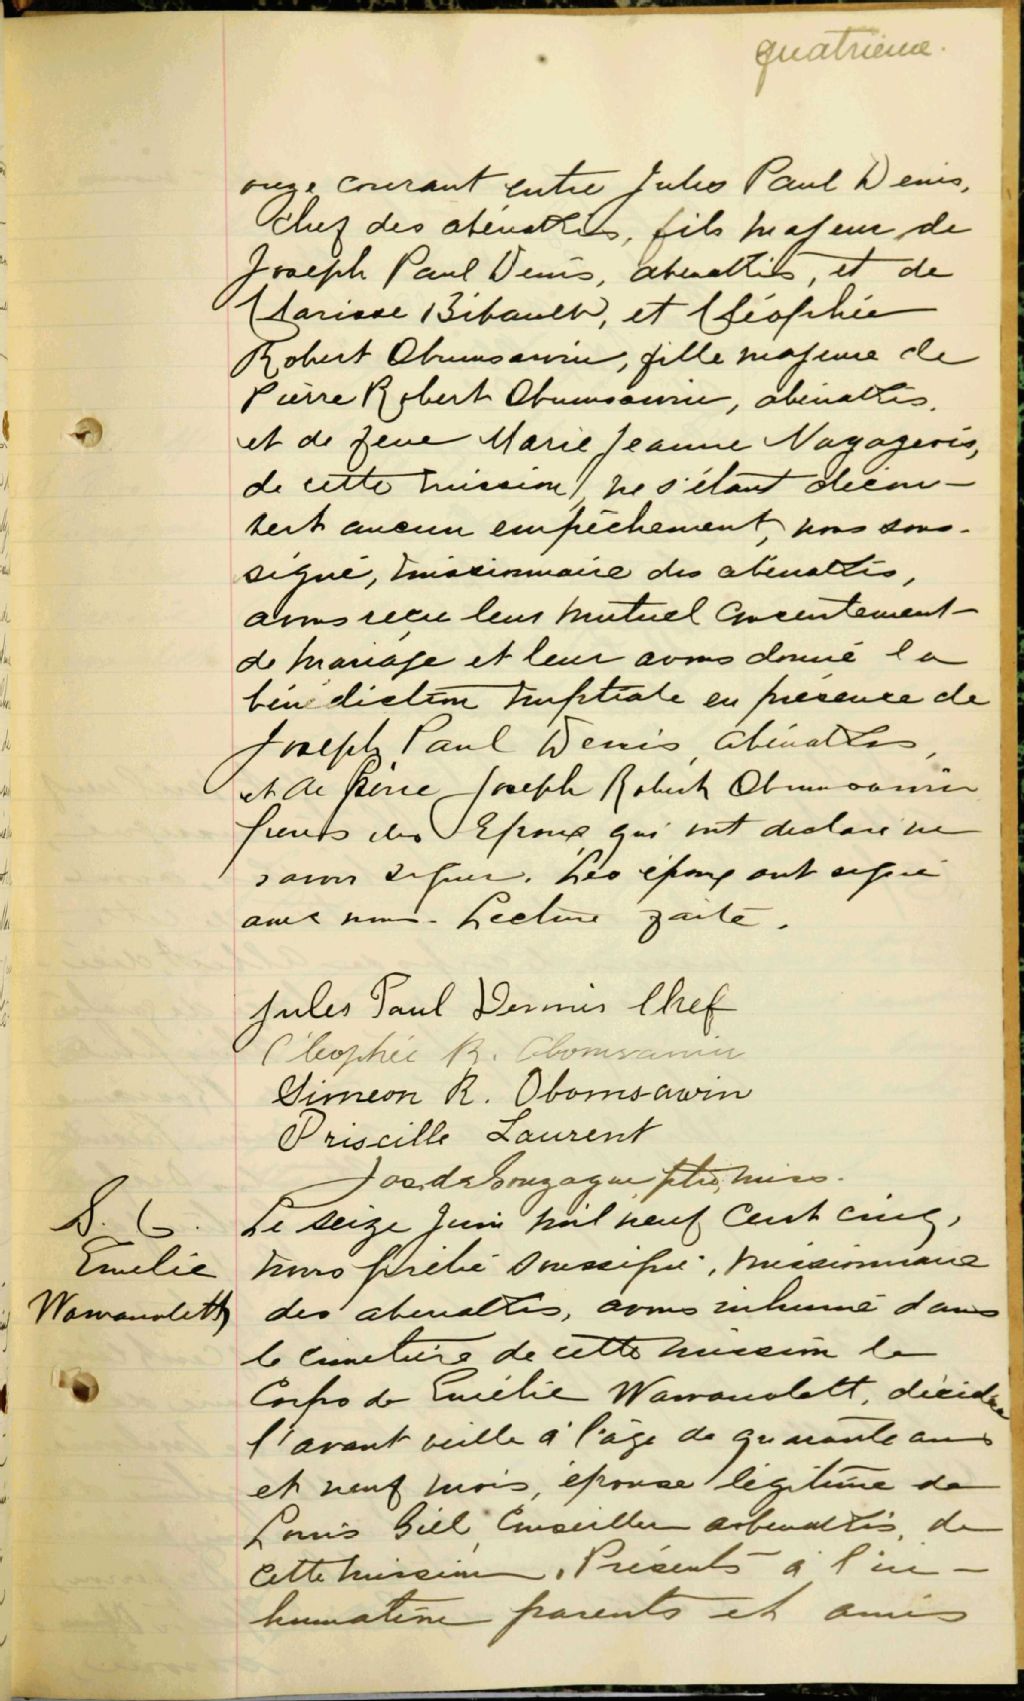 quatrième.
onze courant entre Jules Paul Denis,
Chef des abénakis, fils majeur de
Joseph Paul Denis, abenakis, et de
Marisse Bibault, et Cléophée
Robert Obumsawin, fille majeure de
Pierre Robert Obumsawin, abénakis,
et de feue Marie Jeanne
de cette mission, ne s'étant décou-
vert aucun empêchement, nous sous-
signé, missionnaire des abénakis,
avons reçu leur mutuel consentement
de mariage et leur avons donné la
bénédiction nuptiale en présence de
Joseph Paul Denis, abénakis,
et de Pierre Joseph Robert Obumsawin
des Epoux qui ont declaré ne
savoir signer. Les époux ont signé
avec nous. Lecture faite.
Jules Paul Dennis Chef
Cléophée R. Obomsawin
Simeon R. Obomsawin
Priscille Laurent
Jos. de Gonzague, ptre, miss.
S. 6.
Emelie
Wawanolett
Le seize Juin mil neuf cent cinq,
nous prêtre soussigné, missionnaire
des abenakis, avons inhumé dans
le cimetière de cette mission le
Corps de Emélie Wawanolett, décédée
l'avant veille à l'âge de quarante ans
et neuf mois, épouse légitime de
Louis Gill, Conseiller abenakis, de
cette mission. Présents à l'in-
humation parents et amis